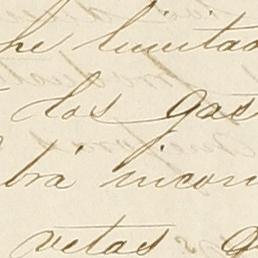 he limitad
los gas
brá incon
vetas g